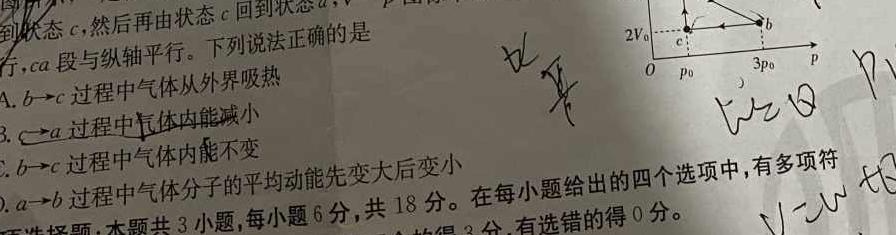 到状态 c,然后再由状态 c 回到状态 a,V
行,ca 段与纵轴平行。下列说法正确的是
A. b→c 过程中气体从外界吸热
B. c→a 过程中气体内能减小
C. b→c 过程中气体内能不变
D. a→b 过程中气体分子的平均动能先变大后变小
2V₀
c
b
O
p₀
3p₀
p
选择题:本题共 3 小题,每小题 6 分,共 18 分。在每小题给出的四个选项中,有多项符
的得 3 分,有选错的得 0 分。